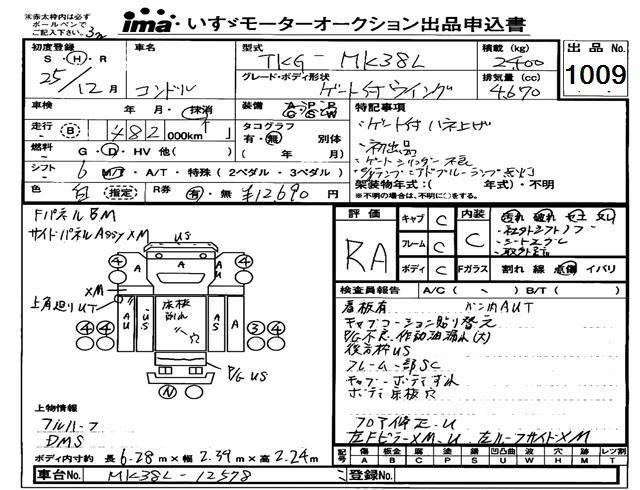 ※赤太枠内は必ず
ボールペンで
ご記入下さい。
ima いすゞモーターオークション出品申込書
初度登録
S・H・R
25/12月
車名
コンドル
型式
TKG-MK38L
積載(kg)
2400
グレード・ボディ形状
ゲート付ウイング
排気量(cc)
4670
出品No.
1009
車検 年・月・抹消
装備 A・P・P
G・S・W
走行 B 482 000km
タコグラフ
有・無 別体
( 年 月)
燃料 G・D・HV 他( )
シフト 6 M/T・A/T・特殊(2ペダル・3ペダル)
色 白 (指定) R券 有・無 ¥12690 円
特記事項
・ゲート付ハネ上げ
・初出品
架装物年式:( 年式)・不明
※不明の場合は、不明に○をする。
FパネルBM
サイドパネルAssy XM
US
XM
上角廻りUT
床板
穴
P/G US
④ ④ ④④ ③④
A A A A A
AU US AS A
N
上物情報
フルハーフ
DMS
ボディ内寸約 長 6.28m×幅 2.39m×高 2.24m
車台No. MK38L-12578
登録No.
評価
RA
キャブ C
フレーム C
ボディ C
内装 C
汚れ 破れ
・社外シフトノブ
Fガラス 割れ 線 点傷 イバリ
検査員報告 A/C( 、 ) B/T( )
看板有 バン内AUT
キャブコーション貼り替え
P/G不良、作動油漏れ(大)
後方枠US
フレーム一部SC
キャブーボディずれ
ボディ床板穴
フロア修正、U
左FピラーXM、U、左ルーフサイドXM
記号 傷 板金 サビ 腐食 塗装 凹凸曲 波 穴 跡 レンズ割
A B C F P S U W H M T